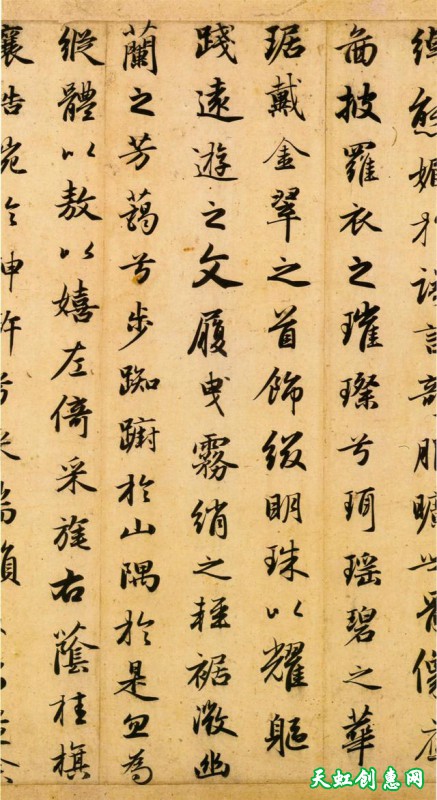 綽態媚於語言奇服曠世骨像應
圖披羅衣之璀璨兮珥瑤碧之華
琚戴金翠之首飾綴明珠以耀軀
踐遠遊之文履曳霧綃之輕裾微幽
蘭之芳藹兮步踟躕於山隅於是忽焉
縱體以敖以嬉左倚采旄右蔭桂旗
於神滸兮
天虹创惠网